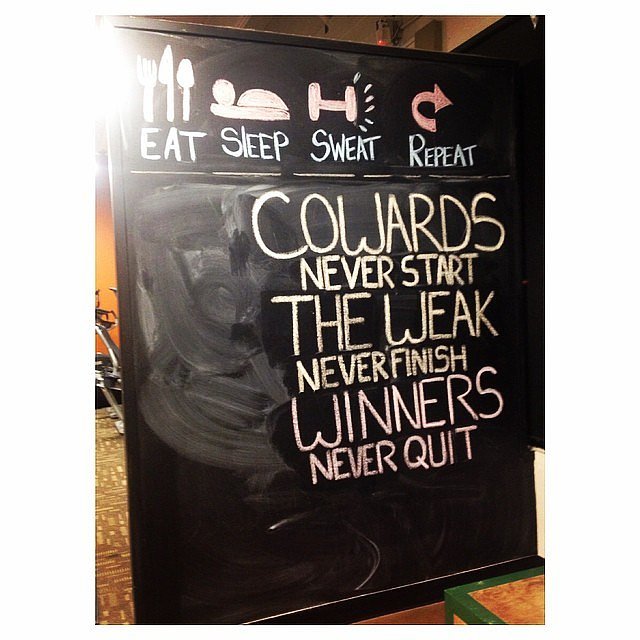 EAT SLEEP SWEAT REPEAT
COWARDS
NEVER START
THE WEAK
NEVER FINISH
WINNERS
NEVER QUIT